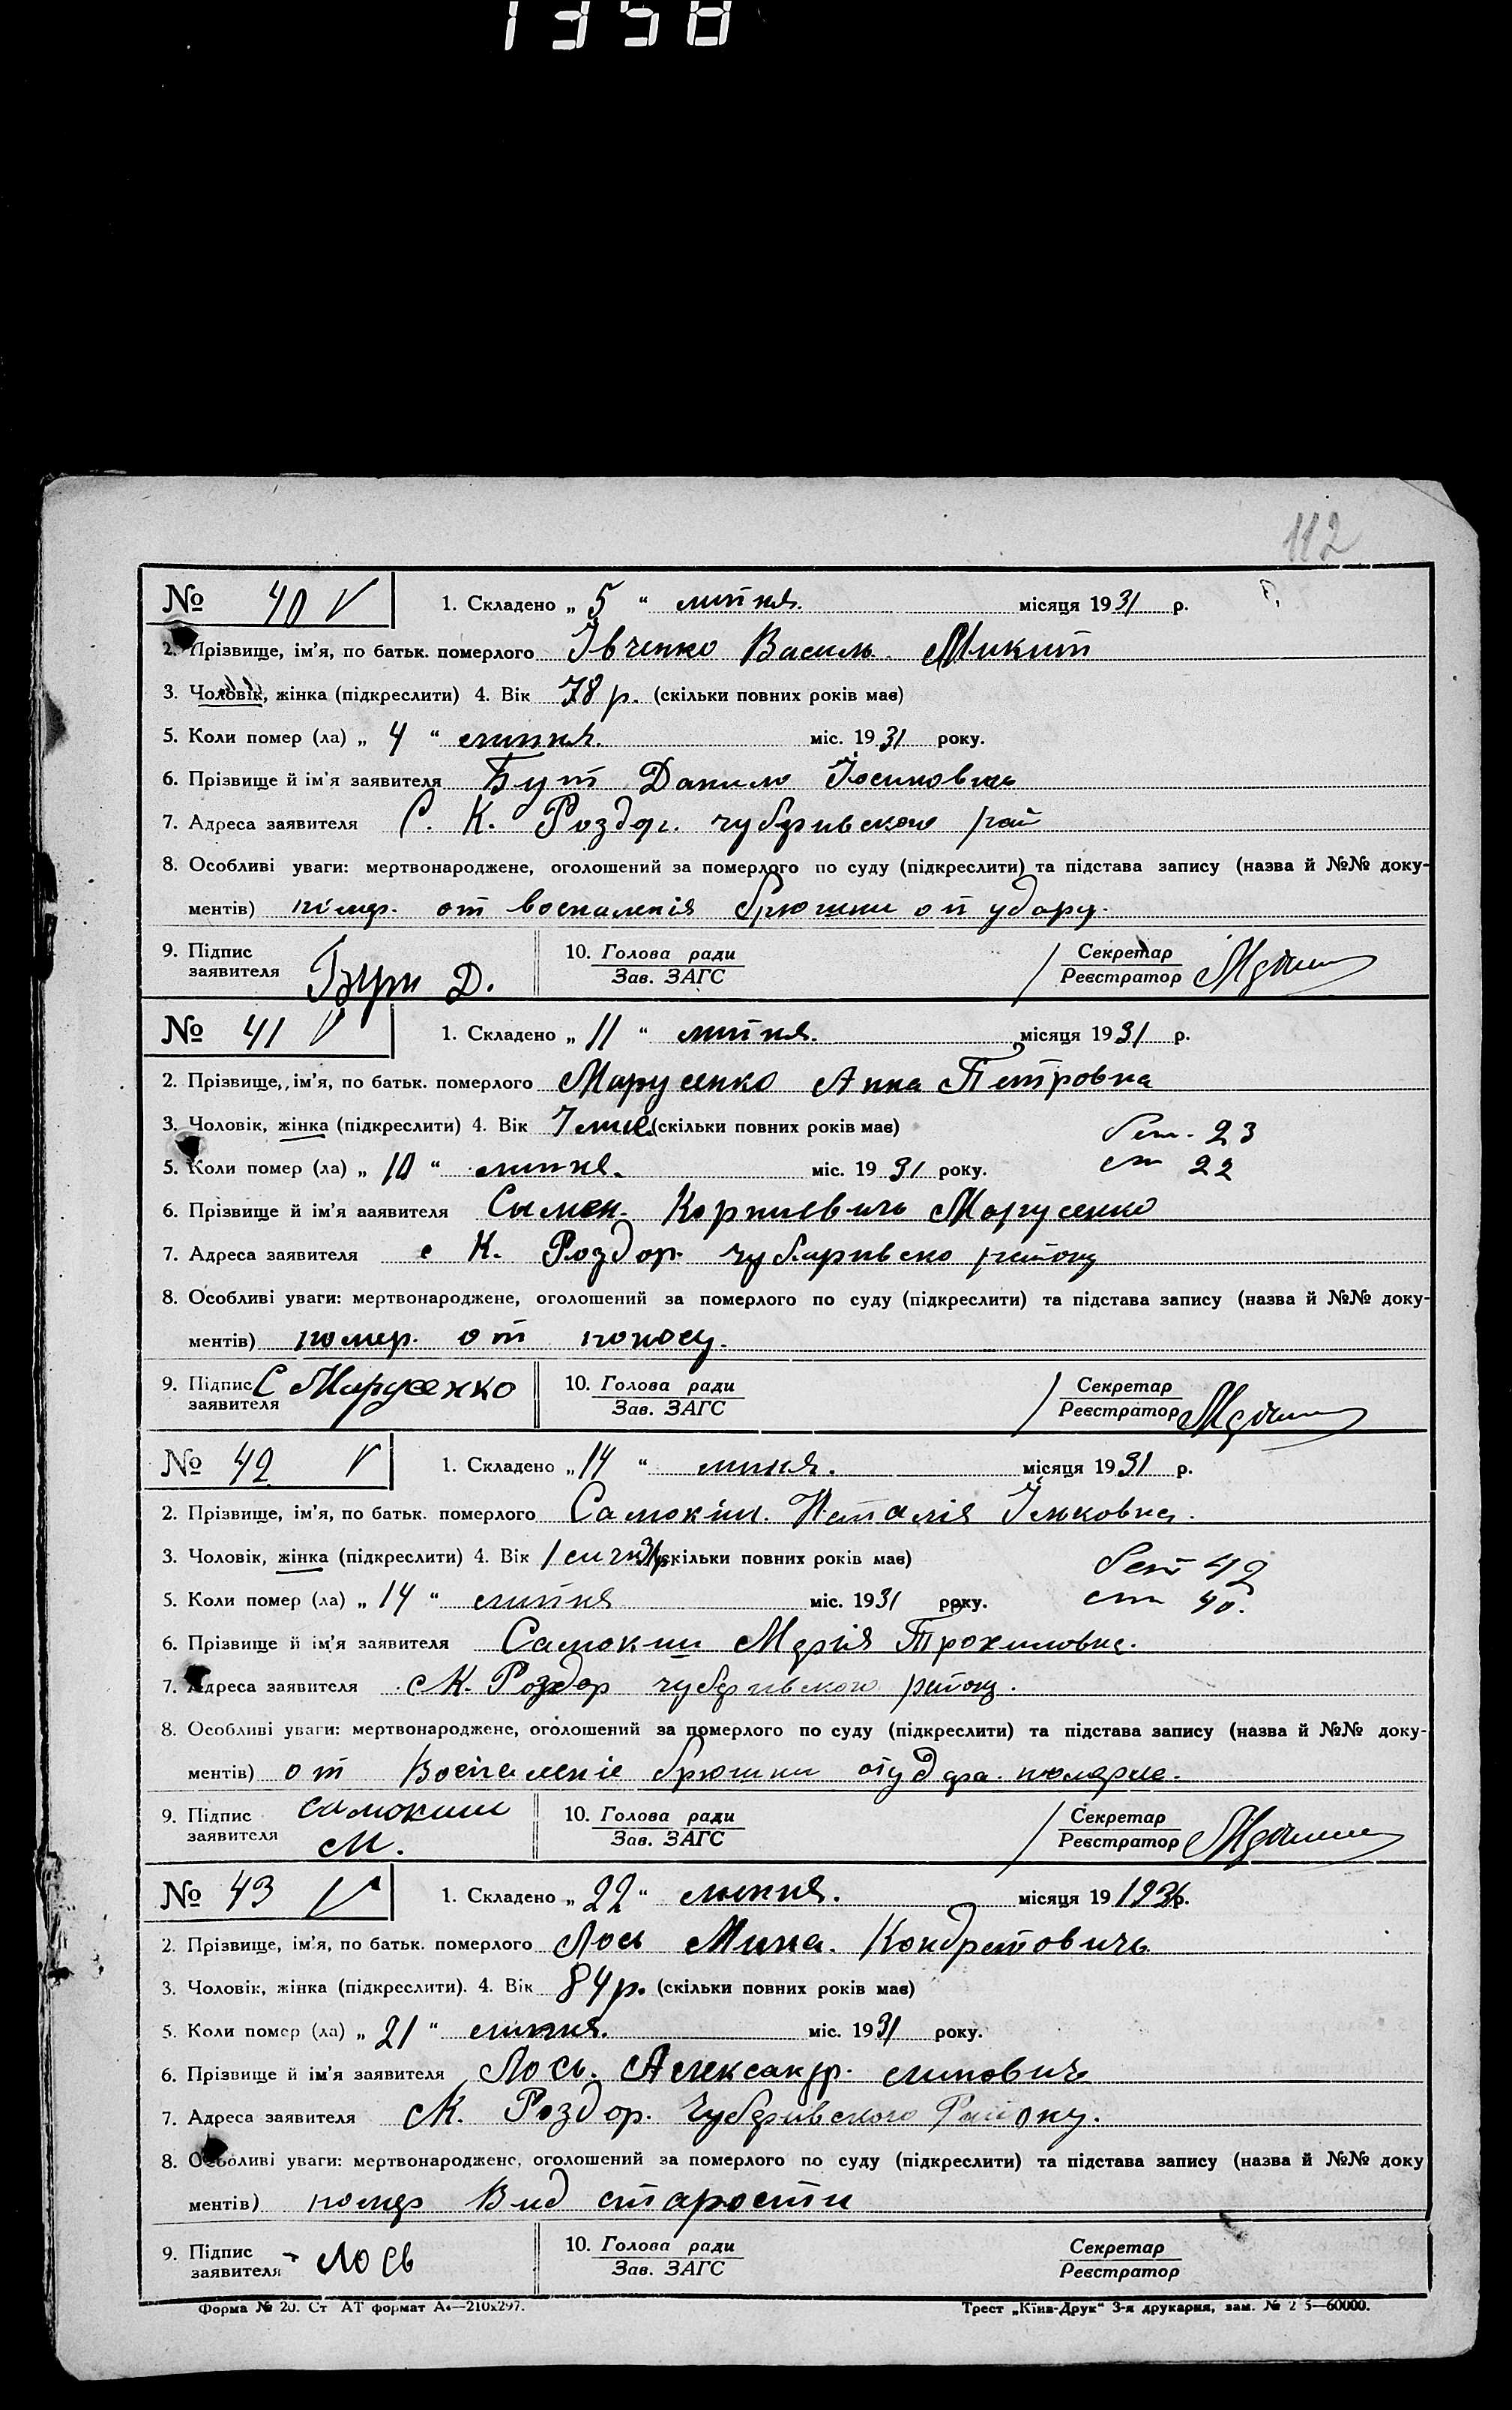 1358
112
№ 40 V 1. Складено „ 5 “ липня. місяця 1931 р.
2. Прізвище, ім’я, по батьк. померлого Івченко Василь Микит
3. Чоловік, жінка (підкреслити) 4. Вік 78 р. (скільки повних років має)
5. Коли помер (ла) „ 4 “ липня. міс. 1931 року.
6. Прізвище й ім’я заявителя Бут Данило
7. Адреса заявителя С. К. Роздор. рай
8. Особливі уваги: мертвонароджене, оголошений за померлого по суду (підкреслити) та підстава запису (назва й №№ доку-
ментів) помер. от воспаленія брюшки от удару.
9. Підпис 10. Голова ради Секретар
заявителя Д. Зав. ЗАГС Реєстратор
№ 41 V 1. Складено „ 11 “ липня. місяця 1931 р.
2. Прізвище, ім’я, по батьк. померлого Марусенко Анна Петровна
3. Чоловік, жінка (підкреслити) 4. Вік (скільки повних років має) 23
5. Коли помер (ла) „ 10 “ липня. міс. 1931 року. ст 22
6. Прізвище й ім’я заявителя Симен. Корниевичь Марусенко
7. Адреса заявителя с К. Роздор. чубаривско району
8. Особливі уваги: мертвонароджене, оголошений за померлого по суду (підкреслити) та підстава запису (назва й №№ доку-
ментів) помер. от поносу.
9. Підпис С Марусенко 10. Голова ради Секретар
заявителя Зав. ЗАГС Реєстратор
№ 42 V 1. Складено „ 14 “ липня. місяця 1931 р.
2. Прізвище, ім’я, по батьк. померлого Самокиш. Наталія
3. Чоловік, жінка (підкреслити) 4. Вік 1 (скільки повних років має) 42
5. Коли помер (ла) „ 14 “ липня міс. 1931 року. ст 40.
6. Прізвище й ім’я заявителя Самокиш Марія Трохимовна.
7. Адреса заявителя с К. Роздор району.
8. Особливі уваги: мертвонароджене, оголошений за померлого по суду (підкреслити) та підстава запису (назва й №№ доку-
ментів) от Воспаленіе брюшки
9. Підпис самокиш 10. Голова ради Секретар
заявителя М. Зав. ЗАГС Реєстратор
№ 43 V 1. Складено „ 22 “ липня. місяця 19 1931 р.
2. Прізвище, ім’я, по батьк. померлого Лось Мина. Кондратовичь
3. Чоловік, жінка (підкреслити). 4. Вік 84 р. (скільки повних років має)
5. Коли помер (ла) „ 21 “ липня. міс. 1931 року.
6. Прізвище й ім’я заявителя Лось. Александр. миновичь
7. Адреса заявителя с К. Роздор. Чубаривского Району.
8. Особливі уваги: мертвонароджене, оголошений за померлого по суду (підкреслити) та підстава запису (назва й №№ доку
ментів) помер Вид старости
9. Підпис Лось 10. Голова ради Секретар
заявителя Зав. ЗАГС Реєстратор
Форма № 20. Ст АТ формат А4—210x297. Трест „Київ-Друк“ 3-я друкарня, зам. № 2 5—60000.